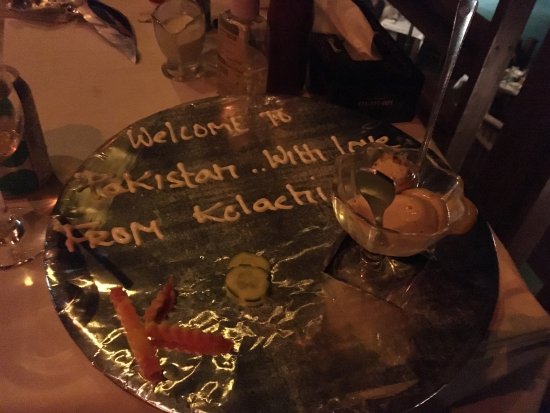 Welcome To
Pakistan ..With Love
FROM Kolachi